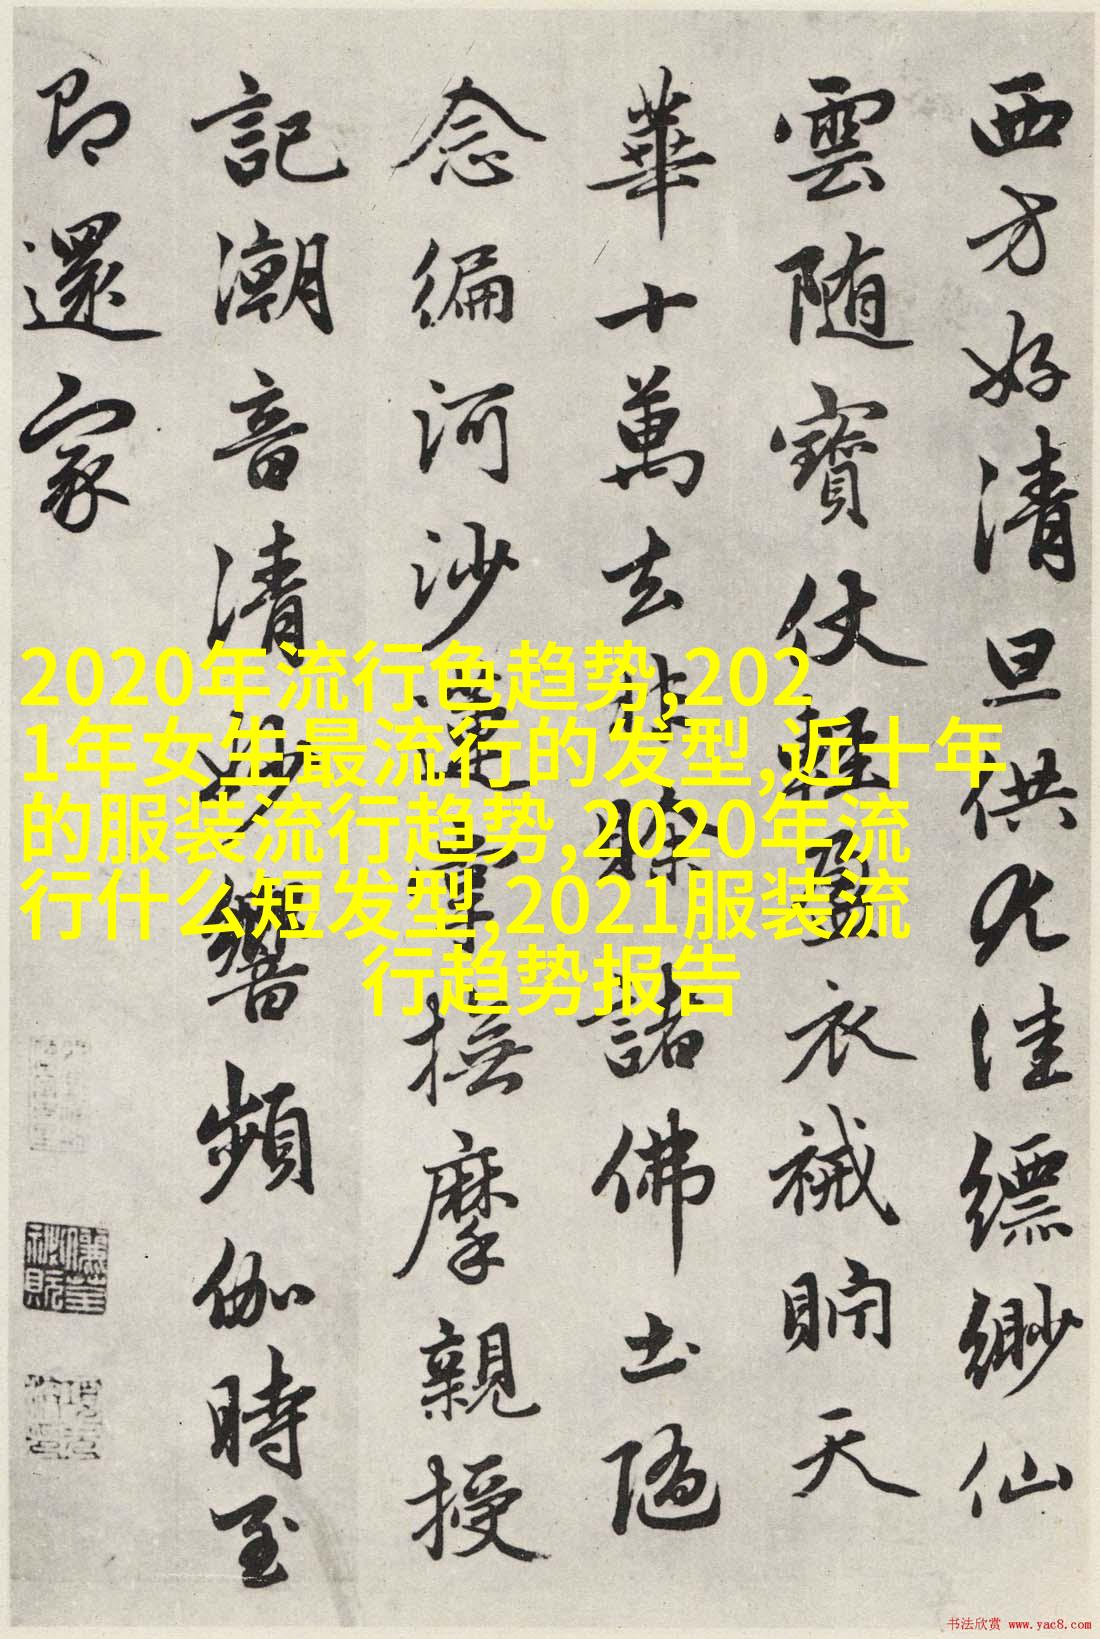 西方好清旦供九洼缥缈仙
雲随寶仗輕盈衣裓貯天
華十萬去
餘諸佛土隨
念编河沙
摩撫摩親授
記潮音清妙響頻伽時至
即還家
2020年流行色趋势,202
1年女生最流行的发型,近十年
的服装流行趋势,2020年流
行什么短发型,2021服装流
行趋势报告
书法欣赏 www.yac8.com